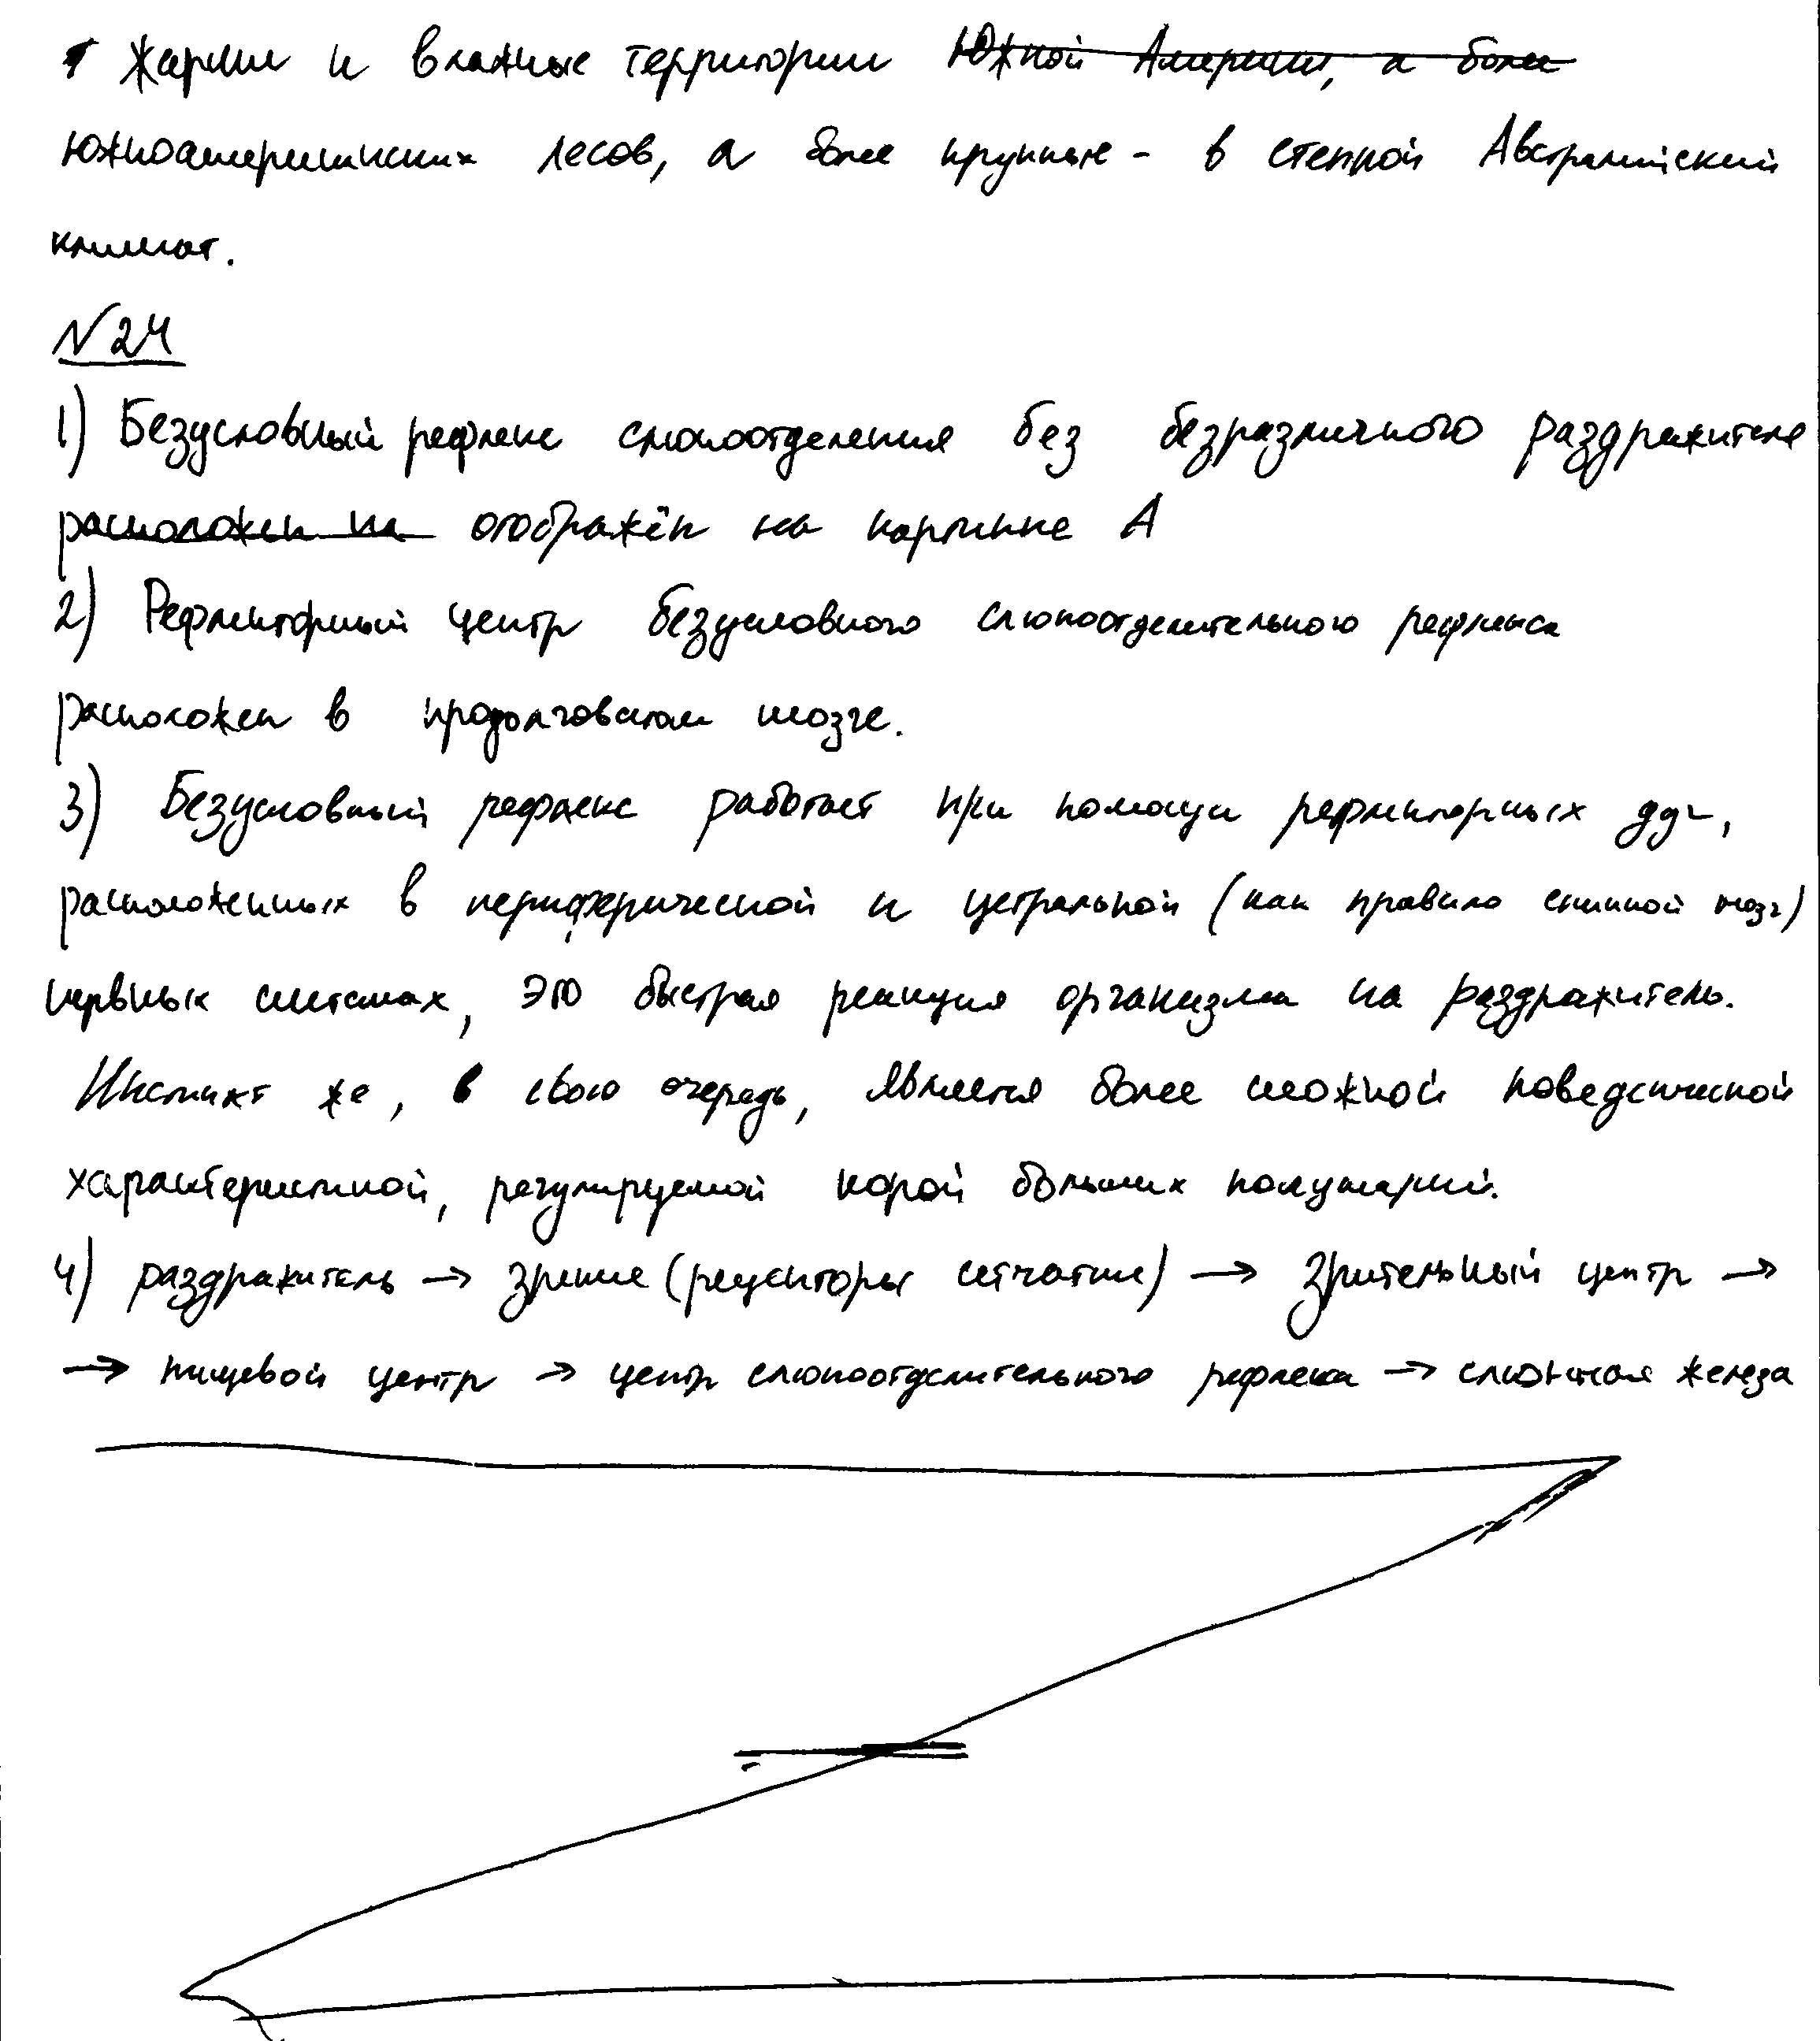 жаркие и влажные территории Южной Америки, а более
южноамериканских лесов, а более крупные - в степной Австралийский
климат.
N24
1) Безусловный рефлекс слюноотделения без безразличного раздражителя
расположен на отображён на картинке А
2) Рефлекторный центр безусловного слюноотделительного рефлекса
расположен в продолговатом мозге.
3) Безусловный рефлекс работает при помощи рефлекторных дуг,
расположенных в периферической и цетральной (как правило спинной мозг)
нервных системах, это быстрая реакция организма на раздражитель.
Инстинкт же, в свою очередь, является более сложной поведенческой
характеристикой, регулируемой корой больших полушарий.
4) раздражитель → зрение (рецепторы сетчатки) → зрительный центр →
→ пищевой центр → центр слюноотделительного рефлекса → слюнная железа